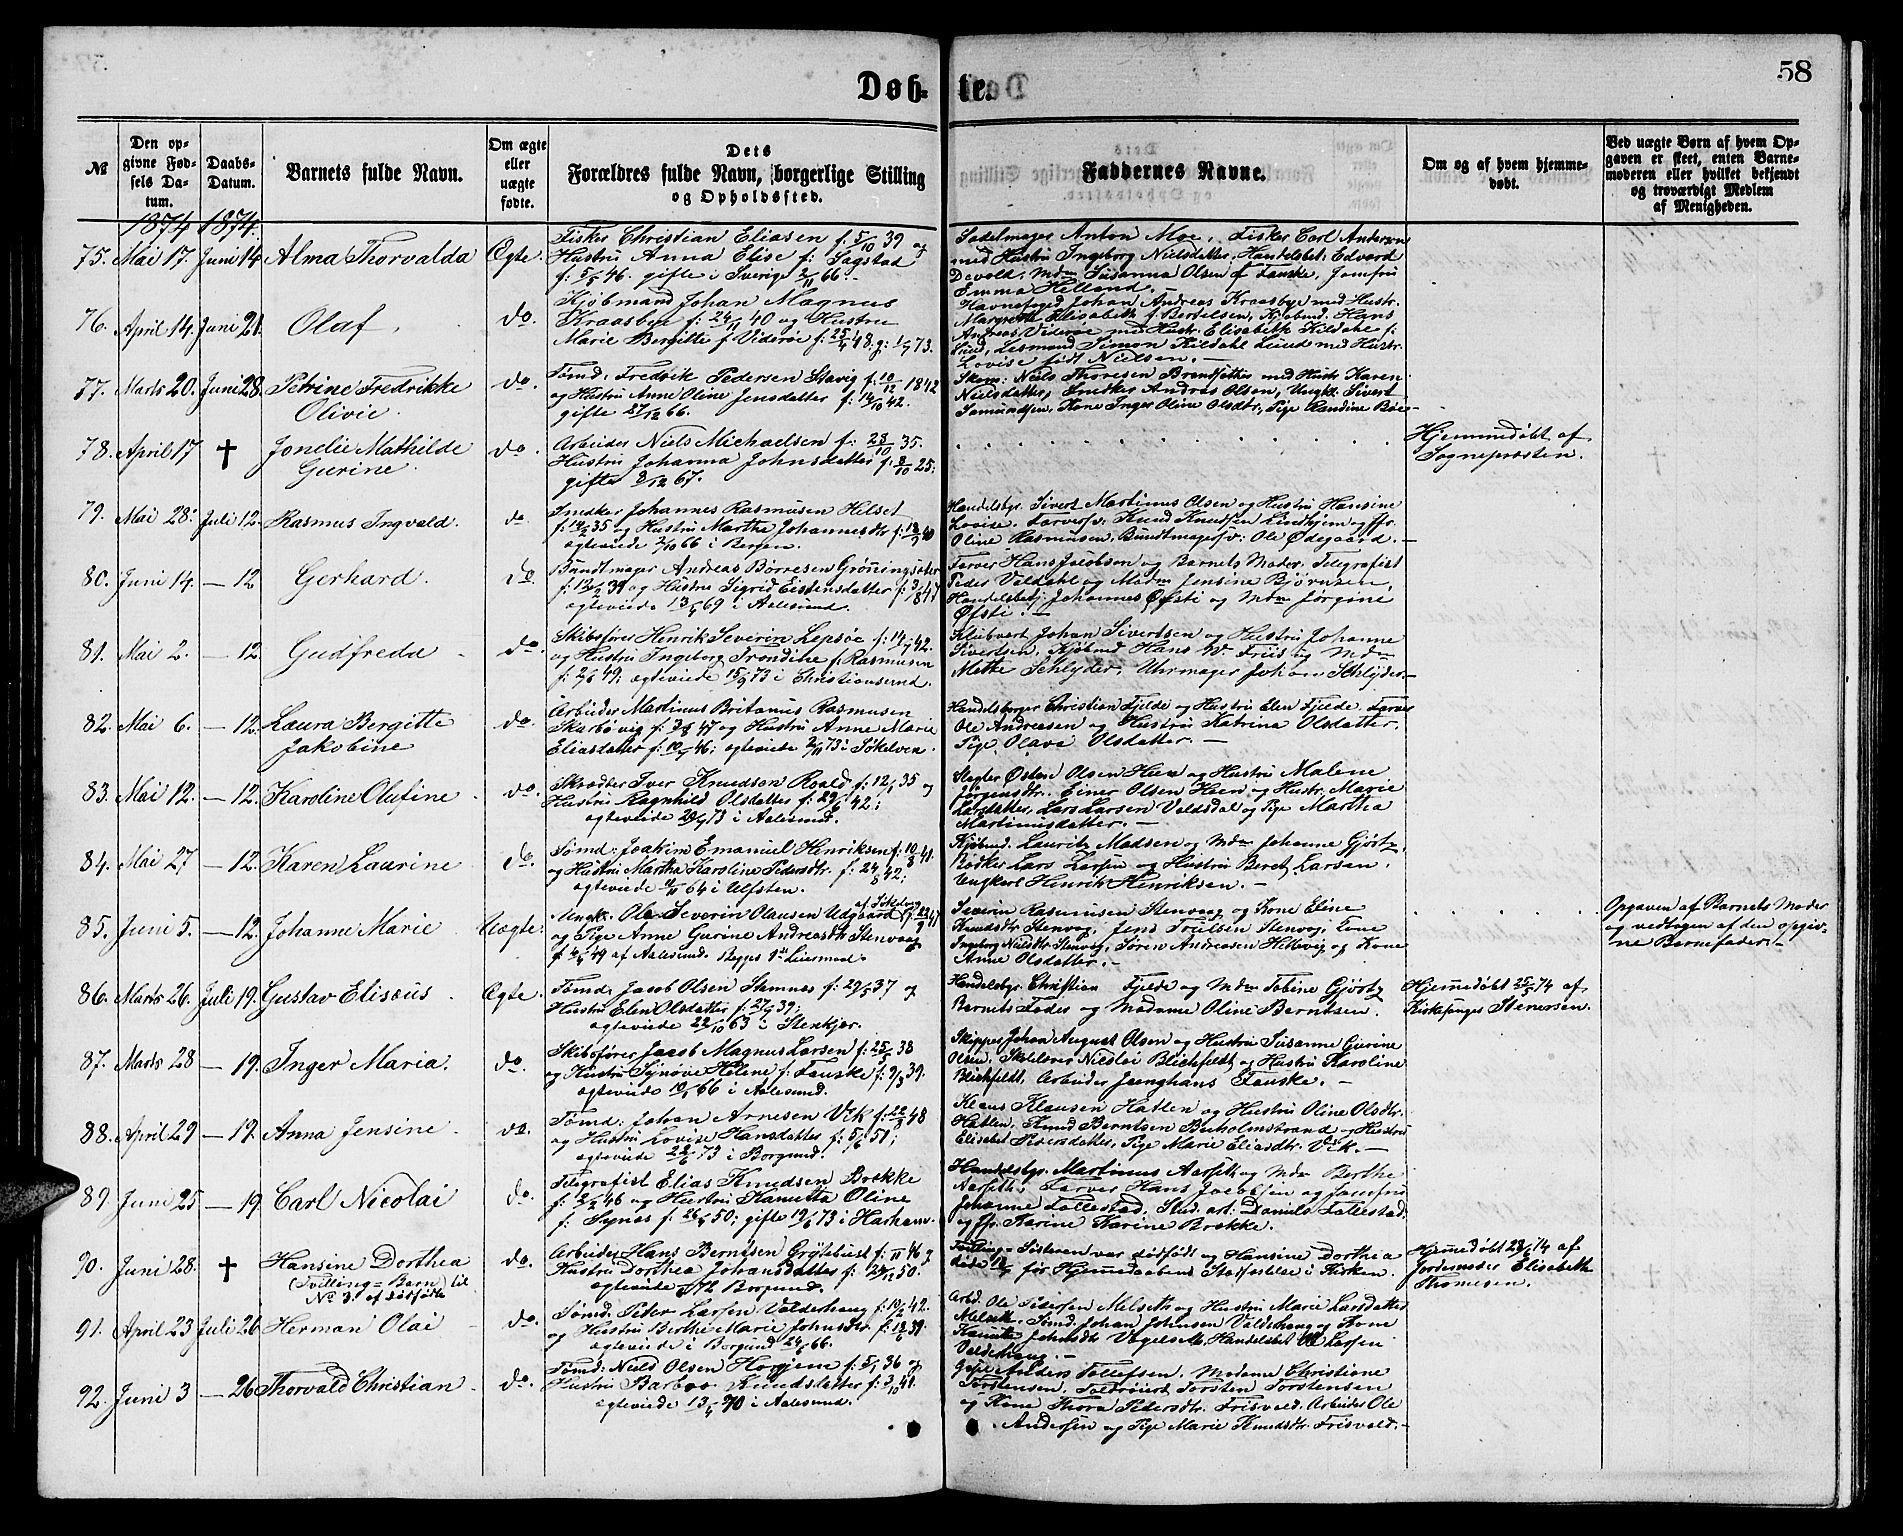 58
Døb- te.
№
Den opgivne Fødsels Datum.
Daabs-Datum.
Barnets fulde Navn.
Om ægte eller uægte fødte.
Dets Forældres fulde Navn, borgerlige Stilling og Opholdssted.
Faddernes Navne.
Om og af hvem hjemmedøbt.
Ved uægte Børn af hvem Opgaven er skeet, enten Barnemoderen eller hvilket bekjendt og troværdigt Medlem af Menigheden.
1874 1874.
75. Mai 17. Juni 14 Alma Thorvalda Ægte.
Fisker Christian Eliasen f: 5/10 39 og
Hustru Anna Elise f: Sagstad
f: 5/5 46. gifte i Sverige 2/11 66.
Sadelmager Anton Moe, Fisker Carl Andersen
med Hustru Ingeborg Nielsdatter, Handelsbet. Edvard
Devold, Mdm Susanna Olsen f. Fauske, Jomfru
Emma Helland.
76. April 14. Juni 21. Olaf. do.
Kjøbmand Johan Magnus
Kraasbye f: 24/11 40 og Hustru
Marie Bergitte f Viderøe f: 25/4 48. g: 1/7 73.
Havnefoged Johan Andreas Kraasbye med Hustr.
Margrethe Elisabeth f. Bertelsen, Kjøbmd. Hans
Andreas Viderøe med Hustr. Elisabeth Kildahl f:
Lund, Lesmand Simon Kildahl Lund med Hustr.
Lovise født Nielsen.
77. Marts 20. Juni 28. Petrine Fredrikke
Olivie. do.
Tømd. Fredrik Pedersen Slavig f: 10/12 1842
og Hustru Anne Oline Jensdatter f: 14/10 42.
gifte 27/12 66.
Skom: Niels Thoresen Brandsetter med Hustr. Karen
Nielsdatter, Snedker Andreas Olsen, Ungk. Sivert
Samundsen, Kone Inger Oline Olsdtr, Pige Randine Bøe
78. April 17 † Jonelie Mathilde
Gurine. do.
Arbeider Niels Michaelsen f: 23/10 35.
Hustru Johanna Johnsdatter f: 8/10 25;
gifte 8/12 67.
Hjemmedøbt af
Sognepræsten.
79. Mai 28. Juli 12. Rasmus Ingvald. do
Snedker Johannes Rasmusen Hilset
f: 14/2 35 og Hustru Marthe Johannesdtr f: 18/7 40
ægteviede 2/10 66 i Bergen.
Handelsbgr. Sivert Martinus Olsen og Hustru Hansine
Lovise. Farversv. Knud Knudsen Lindhjem og Jfr.
Oline Rasmussen. Bundtmagersv: Ole Ødegaard.
80. Juni 14. — 12 Gerhard. do
Bundtmager Andreas Børresen Grøningsæter
f: 13/2 39 og Hustru Sigrid Eistensdatter f: 3/8 47
ægteviede 13/5 69 i Aalesund.
Farver Hans Jacobsen og Barnets Moder, Telegrafist
Peder Valdahl og Madm Jensine Bjørnsen,
Handelsbetj. Johannes Øfsti og Mdm Jørgine
Øfsti.
81. Mai 2. — 12. Gudfreda do.
Skibsfører Henrik Severin Lepsøe f: 14/7 42.
og Hustru Ingeborg Trondine f: Rasmusen
f: 2/6 49; ægteviede 13/9 73 i Christianssund.
Klubvert Johan Sivertsen og Hustru Johanne
Sivertsen, Kjøbmd Hans W. Friis og Mdm
Mette Schlyder, Uhrmager Johan Schlyder.
82. Mai 6. — 12. Laura Bergitte
Jakobine do.
Arbeider Martinus Britanus Rasmusen
Skarbøvig f: 3/8 47 og Hustru Anne Marie
Eliasdatter f: 10/5 46; ægteviede 2/11 73 i Søkelven.
Handelsborger Christian Fjelde og Hustru Elen Fjelde. Farver
Ole Andreasen og Hustru Katrina Olsdatter.
Pige Olave Olsdatter.
83. Mai 12. — 12. Karoline Olufine do.
Skrædder Iver Knudsen Roald f: 12/1 35 og
Hustru Ragnhild Olsdatter f: 29/6 42;
ægteviede 29/7 73 i Aalesund.
Slagter Østen Olsen Huen og Hustru Malene
Jørgensdtr. Einer Olsen Huen og Hustr. Marie
Larsdatter, Lars Larsen Valdsdal og Pige Martha
Martinusdatter.
84. Mai 27 — 12. Karen Laurine do.
Tømd: Joakim Emanuel Henriksen f: 10/3 41.
og Hustru Martha Karoline Pedersdtr. f: 24/8 42;
ægteviede 11/11 64 i Ulfsten.
Kjøbmd. Lauritz Madsen og Mdm Johanne Gjørtz.
Bødker Lars Larsen og Hustru Beret Larsen.
Ungkarl Henrik Henriksen.
85. Juni 5. — 12. Johanne Marie Uægte.
Ungk. Ole Severin Olausen Udgaard af Søkelven f: 22/9 47
og Pige Anne Gurine Andreasdtr Stenvaag
f: 4/4 49 af Aalesund. Begges 1ste Leiermaal.
Severin Rasmusen Stenvaag og Kone Eline
Knudsdtr Stenvog, Jens Truelsen Stenvog, Kone
Ingeborg Nielsdtr Stenvog, Søren Andreasen Hillevig og Kone
Anne Olsdatter.
Opgaven af Barnets Moder
og vedtagen af den opgiv-
ne Barnefader.
86. Marts 26. Juli 19. Gustav Eliseus Ægte.
Tømd. Jacob Olsen Stamnes f: 29/5 37 og
Hustru Elen Olsdatter f: 27/7 39;
ægteviede 22/10 63 i Stenkjær.
Handelsbgr. Christian Fjelde og Mdm Tobine Gjørtz
Barnets Fader og Madame Oline Berntsen.
Hjemmedøbt 25/5 74 af
Kirkesanger Stenersen.
87. Marts 28 — 19. Inger Maria. do.
Skibsfører Jacob Magnus Larsen f: 25/3 38
og Hustru Synøve Helene f: Fauske f: 9/3 39.
ægteviede 10/5 66 i Aalesund.
Skipper Johan August Olsen og Hustru Susanne Gurine
Olsen. Skolelærer Nicolai Blichfeldt og Hustru Karoline
Blichfeldt, Arbeider Jaenghans Fauske.
88. April 29 — 19. Anna Jensine do.
Tømd: Johan Arnesen Vik f: 22/3 48
og Hustru Lovise Hansdatter f: 5/6 51;
ægteviede 22/6 73 i Borgund.
Klaus Klausen Hatlen og Hustru Oline Olsdtr.
Hatlen. Knud Berntsen Buholmstrand og Hustru
Elisabet Pedersdatter, Pige Marie Eliasdtr. Vik.
89. Juni 25 — 19. Carl Nicolai do.
Telegrafist Elias Knudsen Brække
f: 2/2 46 og Hustru Kanutta Oline
f: Synæs f: 26/5 50; gifte 19/6 73 i Harham.
Handelsbgr. Martinus Aarseth og Mdm Berthe
Aarseth. Farver Hans Jacobsen og Jomfru
Johanne Tollestad, Stud. art. Daniels Tollestad
og Jfr. Karine Karine Brække.
90. Juni 28. † Hansine Dorthea
(Tvilling-Barn) til
No 3. af dødfødte do.
Arbeider Hans Berntsen Grytebust f: 11 46 og
Hustru Dorthea Johansdatter f: 24/12 50.
ægteviede 72 Borgund.
Tvilling-Søsteren var dødfødt og Hansine Dorthea
døde for Hjemmedaabens Stadfæstelse i Kirken.
Hjemmedøbt 28/6 74 af
Jordemoder Elisabeth
Thomesen.
91. April 23 Juli 26 Herman Olai do.
Tømd. Peter Larsen Valderhaug f: 19/2 42.
og Hustru Berthe Marie Johnsdtr f: 13/6 39.
ægteviede i Borgund 24/6 66.
Arbd. Ole Pedersen Melseth og Hustru Marie Larsdatter
Melseth. Tømd. Johan Johnsen Valderhaug og Kone
Kanutte Johnsdtr Vegelseth, Handelsbet. Ole Larsen
Valderhaug.
92. Juni 3 — 26 Thorvald Christian do.
Tømd: Nield Olsen Horgjem f: 5/1 36 og
Hustru Barbro Knudsdatter f: 3/10 41.
ægteviede 13/4 70 i Aalesund.
Anders Tollefsen, Madame Christiane
Torstensen, Toldrorert Torsten Torstensen
og Kone Thora Pedersdtr. Frisvold, Arbeider Ole
Andersen og Pige Marie Knudsdtr. Frisvold.